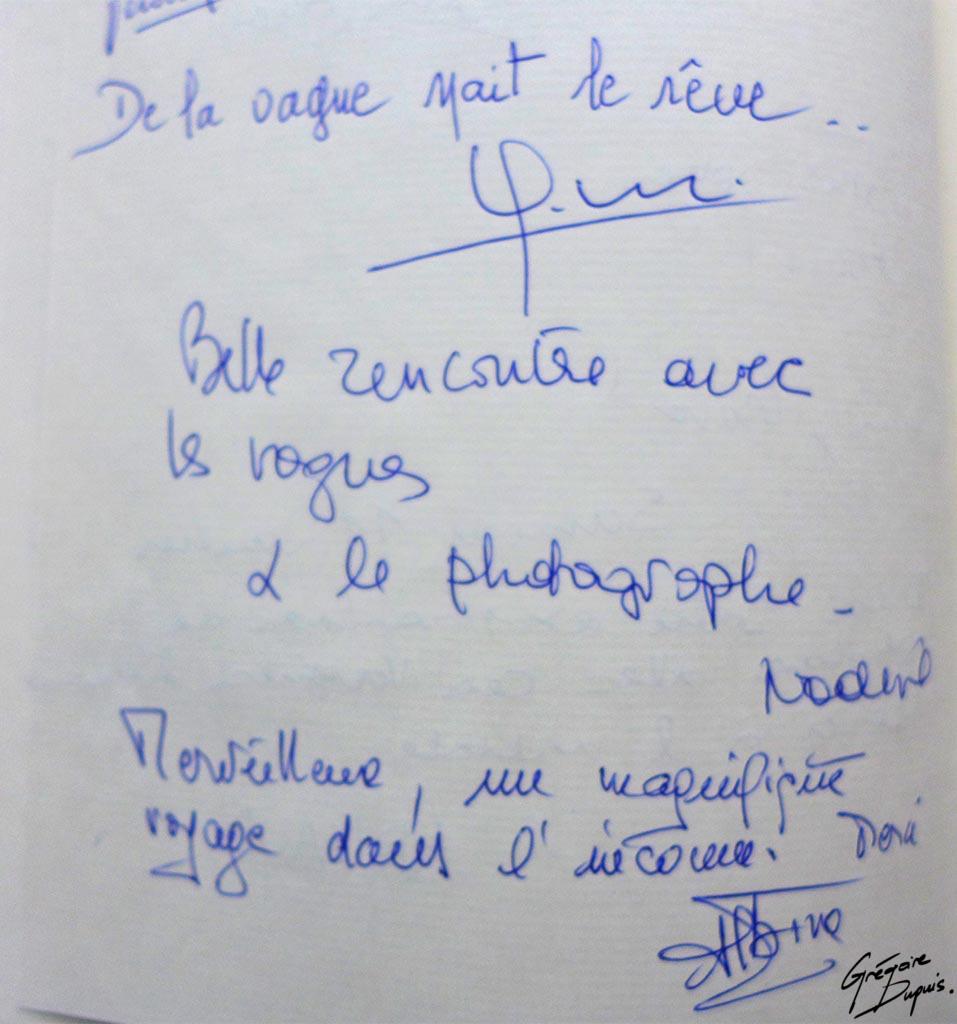 De la vague naît le rêve...
Belle rencontre avec
les vagues
& le photographe.
Nadine
Merveilleux, un magnifique
voyage dans l'inconnu. Merci
Grégoire
Dupuis.